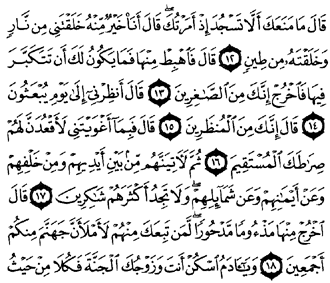 قَالَ مَا مَنَعَكَ أَلَّا تَسْجُدَ إِذْ أَمَرْتُكَ ۖ قَالَ أَنَا۠ خَيْرٌ مِّنْهُ خَلَقْتَنِي مِن نَّارٍ
وَخَلَقْتَهُۥ مِن طِينٍ ١٢ قَالَ فَٱهْبِطْ مِنْهَا فَمَا يَكُونُ لَكَ أَن تَتَكَبَّرَ
فِيهَا فَٱخْرُجْ إِنَّكَ مِنَ ٱلصَّٰغِرِينَ ١٣ قَالَ أَنظِرْنِيٓ إِلَىٰ يَوْمِ يُبْعَثُونَ
١٤ قَالَ إِنَّكَ مِنَ ٱلْمُنظَرِينَ ١٥ قَالَ فَبِمَآ أَغْوَيْتَنِي لَأَقْعُدَنَّ لَهُمْ
صِرَٰطَكَ ٱلْمُسْتَقِيمَ ١٦ ثُمَّ لَـَٔاتِيَنَّهُم مِّنۢ بَيْنِ أَيْدِيهِمْ وَمِنْ خَلْفِهِمْ
وَعَنْ أَيْمَٰنِهِمْ وَعَن شَمَآئِلِهِمْ ۖ وَلَا تَجِدُ أَكْثَرَهُمْ شَٰكِرِينَ ١٧ قَالَ
ٱخْرُجْ مِنْهَا مَذْءُومًا مَّدْحُورًا ۖ لَّمَن تَبِعَكَ مِنْهُمْ لَأَمْلَأَنَّ جَهَنَّمَ مِنكُمْ
أَجْمَعِينَ ١٨ وَيَٰٓـَٔادَمُ ٱسْكُنْ أَنتَ وَزَوْجُكَ ٱلْجَنَّةَ فَكُلَا مِنْ حَيْثُ